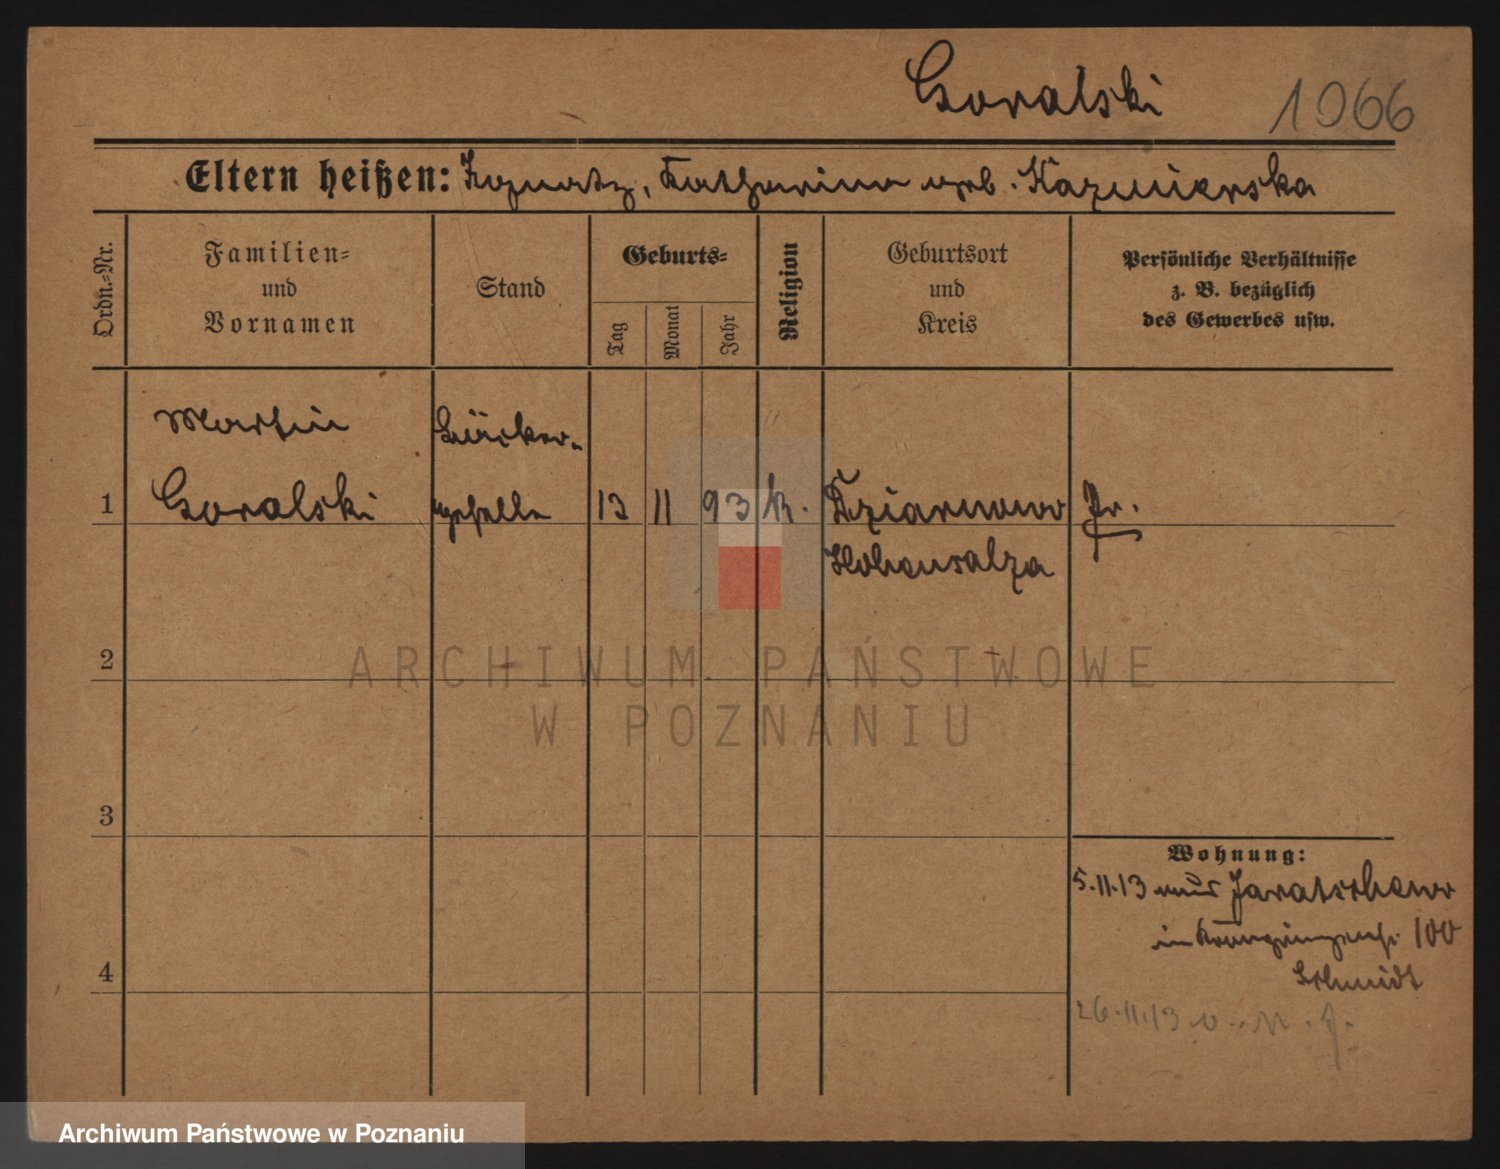 Goralski 1066
Eltern heißen: Ignatz, Katharina geb. Kazmierska
Ordn.-Nr.
Familien-
und
Vornamen
Stand
Geburts-
Tag
Monat
Jahr
Religion
Geburtsort
und
Kreis
Persönliche Verhältnisse
z. B. bezüglich
des Gewerbes usw.
Martin Bäcker-
1 Goralski geselle 13 11 93 k. Dziarnowo Pr.
Hohensalza
2
ARCHIWUM PAŃSTWOWE
W POZNANIU
3
Wohnung:
5.11.13 aus Jaratschewo
in 100
4 Schmidt
26.11.13 v.
Archiwum Państwowe w Poznaniu